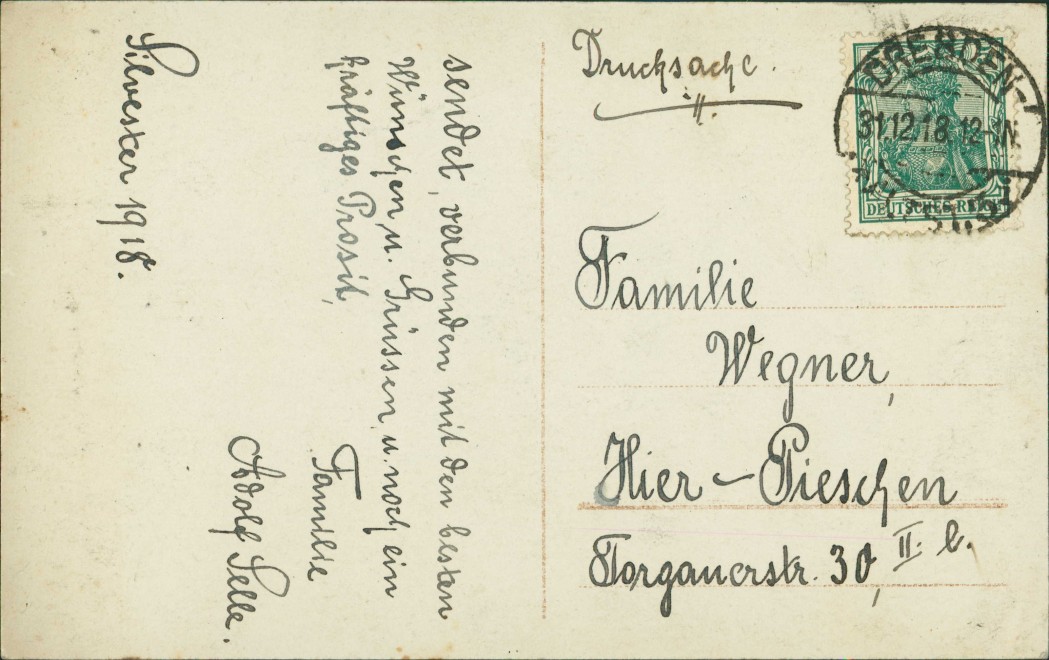 sendet, verbunden mit den besten
Wünschen u. Grüssen u. noch ein
kräftiges Prosit,
Familie
Adolf Selle.
Silvester 1918.
Drucksache.
DRESDEN-
31.12.18.12-1N.
DEUTSCHES REICH
Familie
Wegner,
Hier - Pieschen
Torgauerstr. 30, II. b.